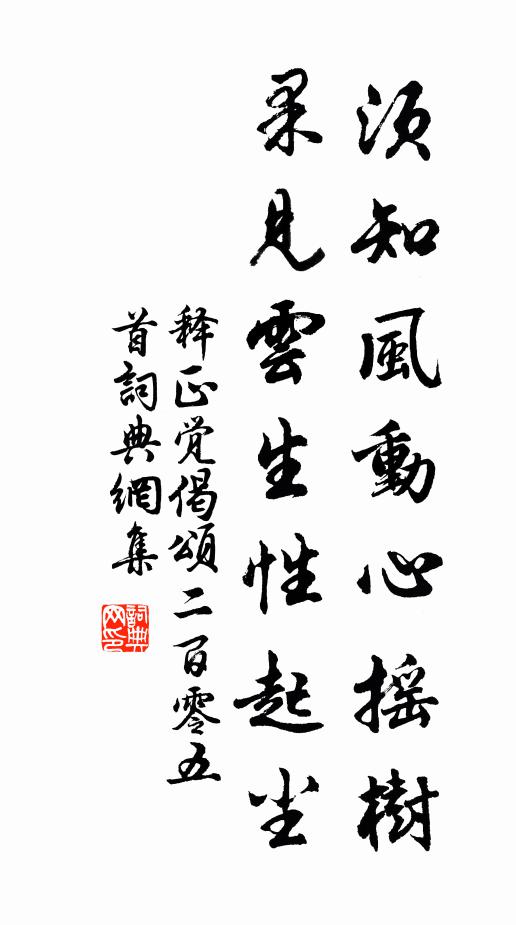 須知風動心搖樹
果見雲生性起尘
释正觉偈頌二百零五
首詞典網集
詞典網印